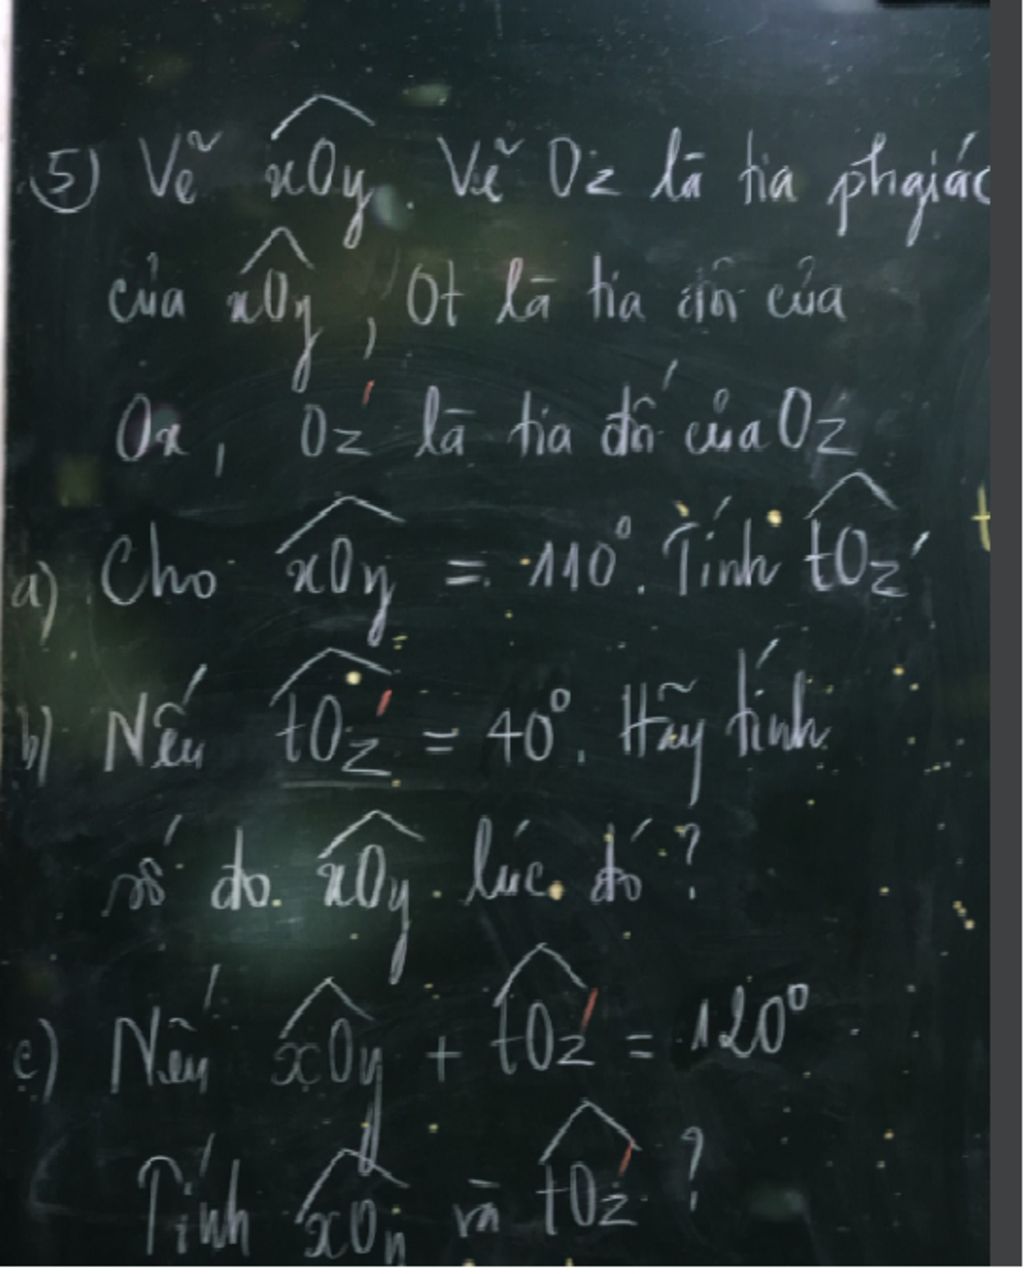 5) Vẽ xOy. Vẽ Oz là tia phgiác
của xOy, Ot là tia đối của
Ox, Oz' là tia đối của Oz
a) Cho xOy = 110°. Tính tOz'
b) Nếu tOz' = 40°. Hãy tính
số đo xOy lúc đó?
c) Nếu xOy + tOz' = 120°
Tính xOy và tOz'?